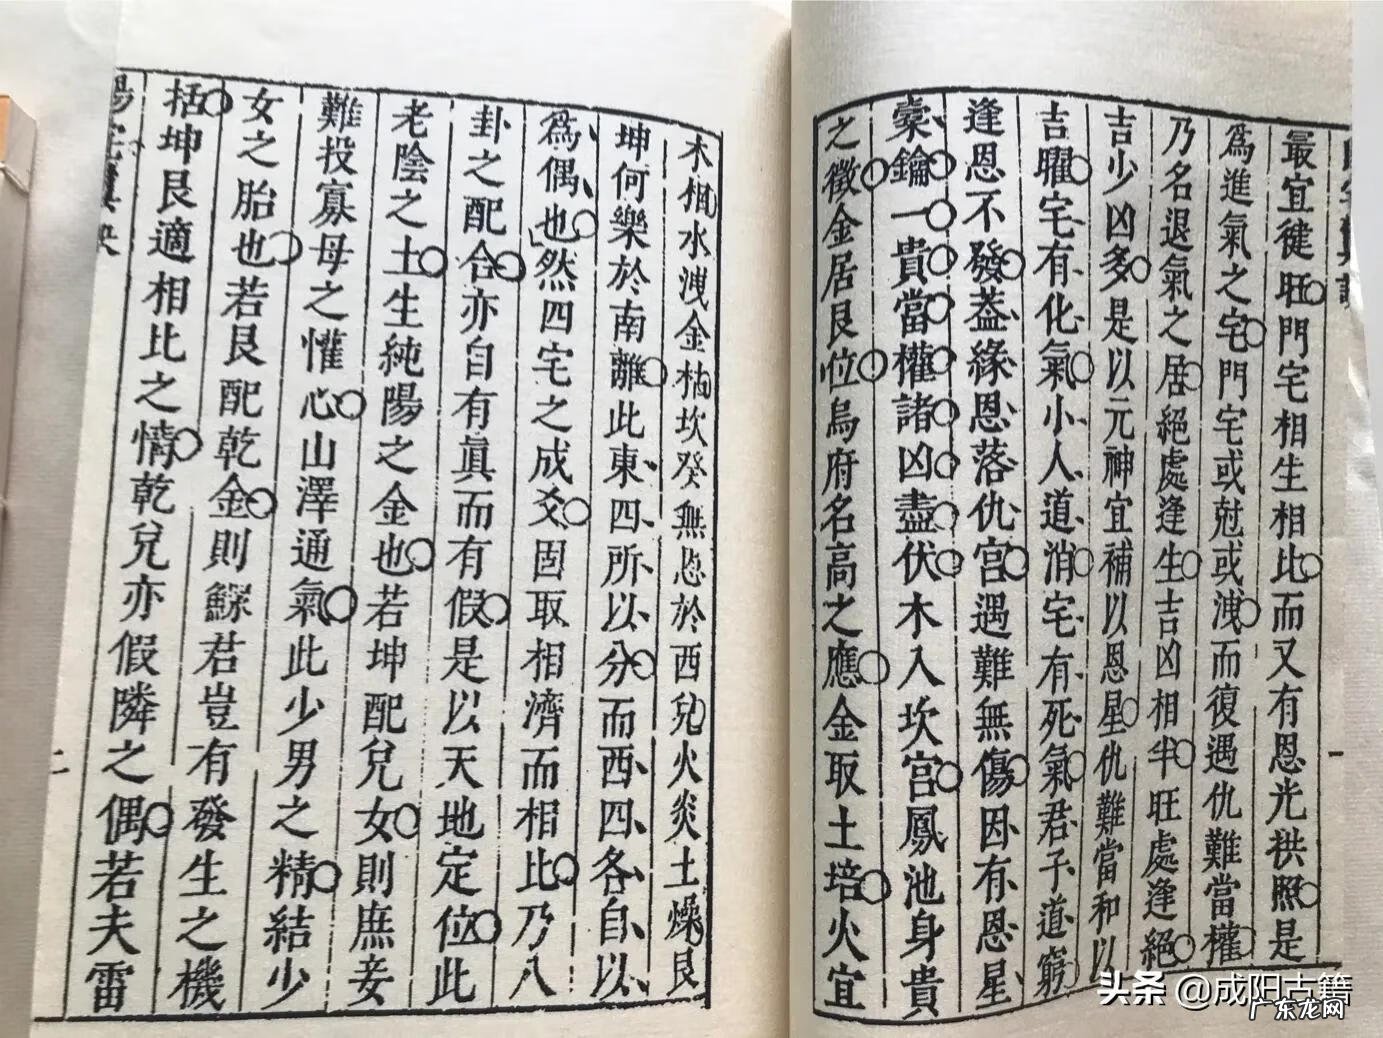 最宜徤旺門宅相生相比而又有恩光拱照是
為進氣之宅門宅或尅或洩而復遇仇難當權
乃名退氣之居絕處逢生吉凶相半旺處逢絕
吉少凶多是以元神宜補以恩星仇難當和以
吉曜宅有化氣小人道消宅有死氣君子道窮
逢恩不發葢緣恩落仇宮遇難無傷因有恩星
槖鑰一貴當權諸凶盡伏木入坎宮鳳池身貴
之徵金居艮位烏府名高之應金取土培火宜
木相水洩金枯坎癸無忌於西兌火炎土燥艮
坤何樂於南離此東四所以分而西四各自以
為偶也然四宅之成爻固取相濟而相比乃八
卦之配合亦自有眞而有假是以天地定位此
老陰之土生純陽之金也若坤配兌女則庶妾
難投寡母之懽心山澤通氣此少男之精結少
女之胎也若艮配乾金則鰥君豈有發生之機
括坤艮適相比之情乾兌亦假隣之偶若夫雷
一
二
头条 @成阳古籍
广东龙网